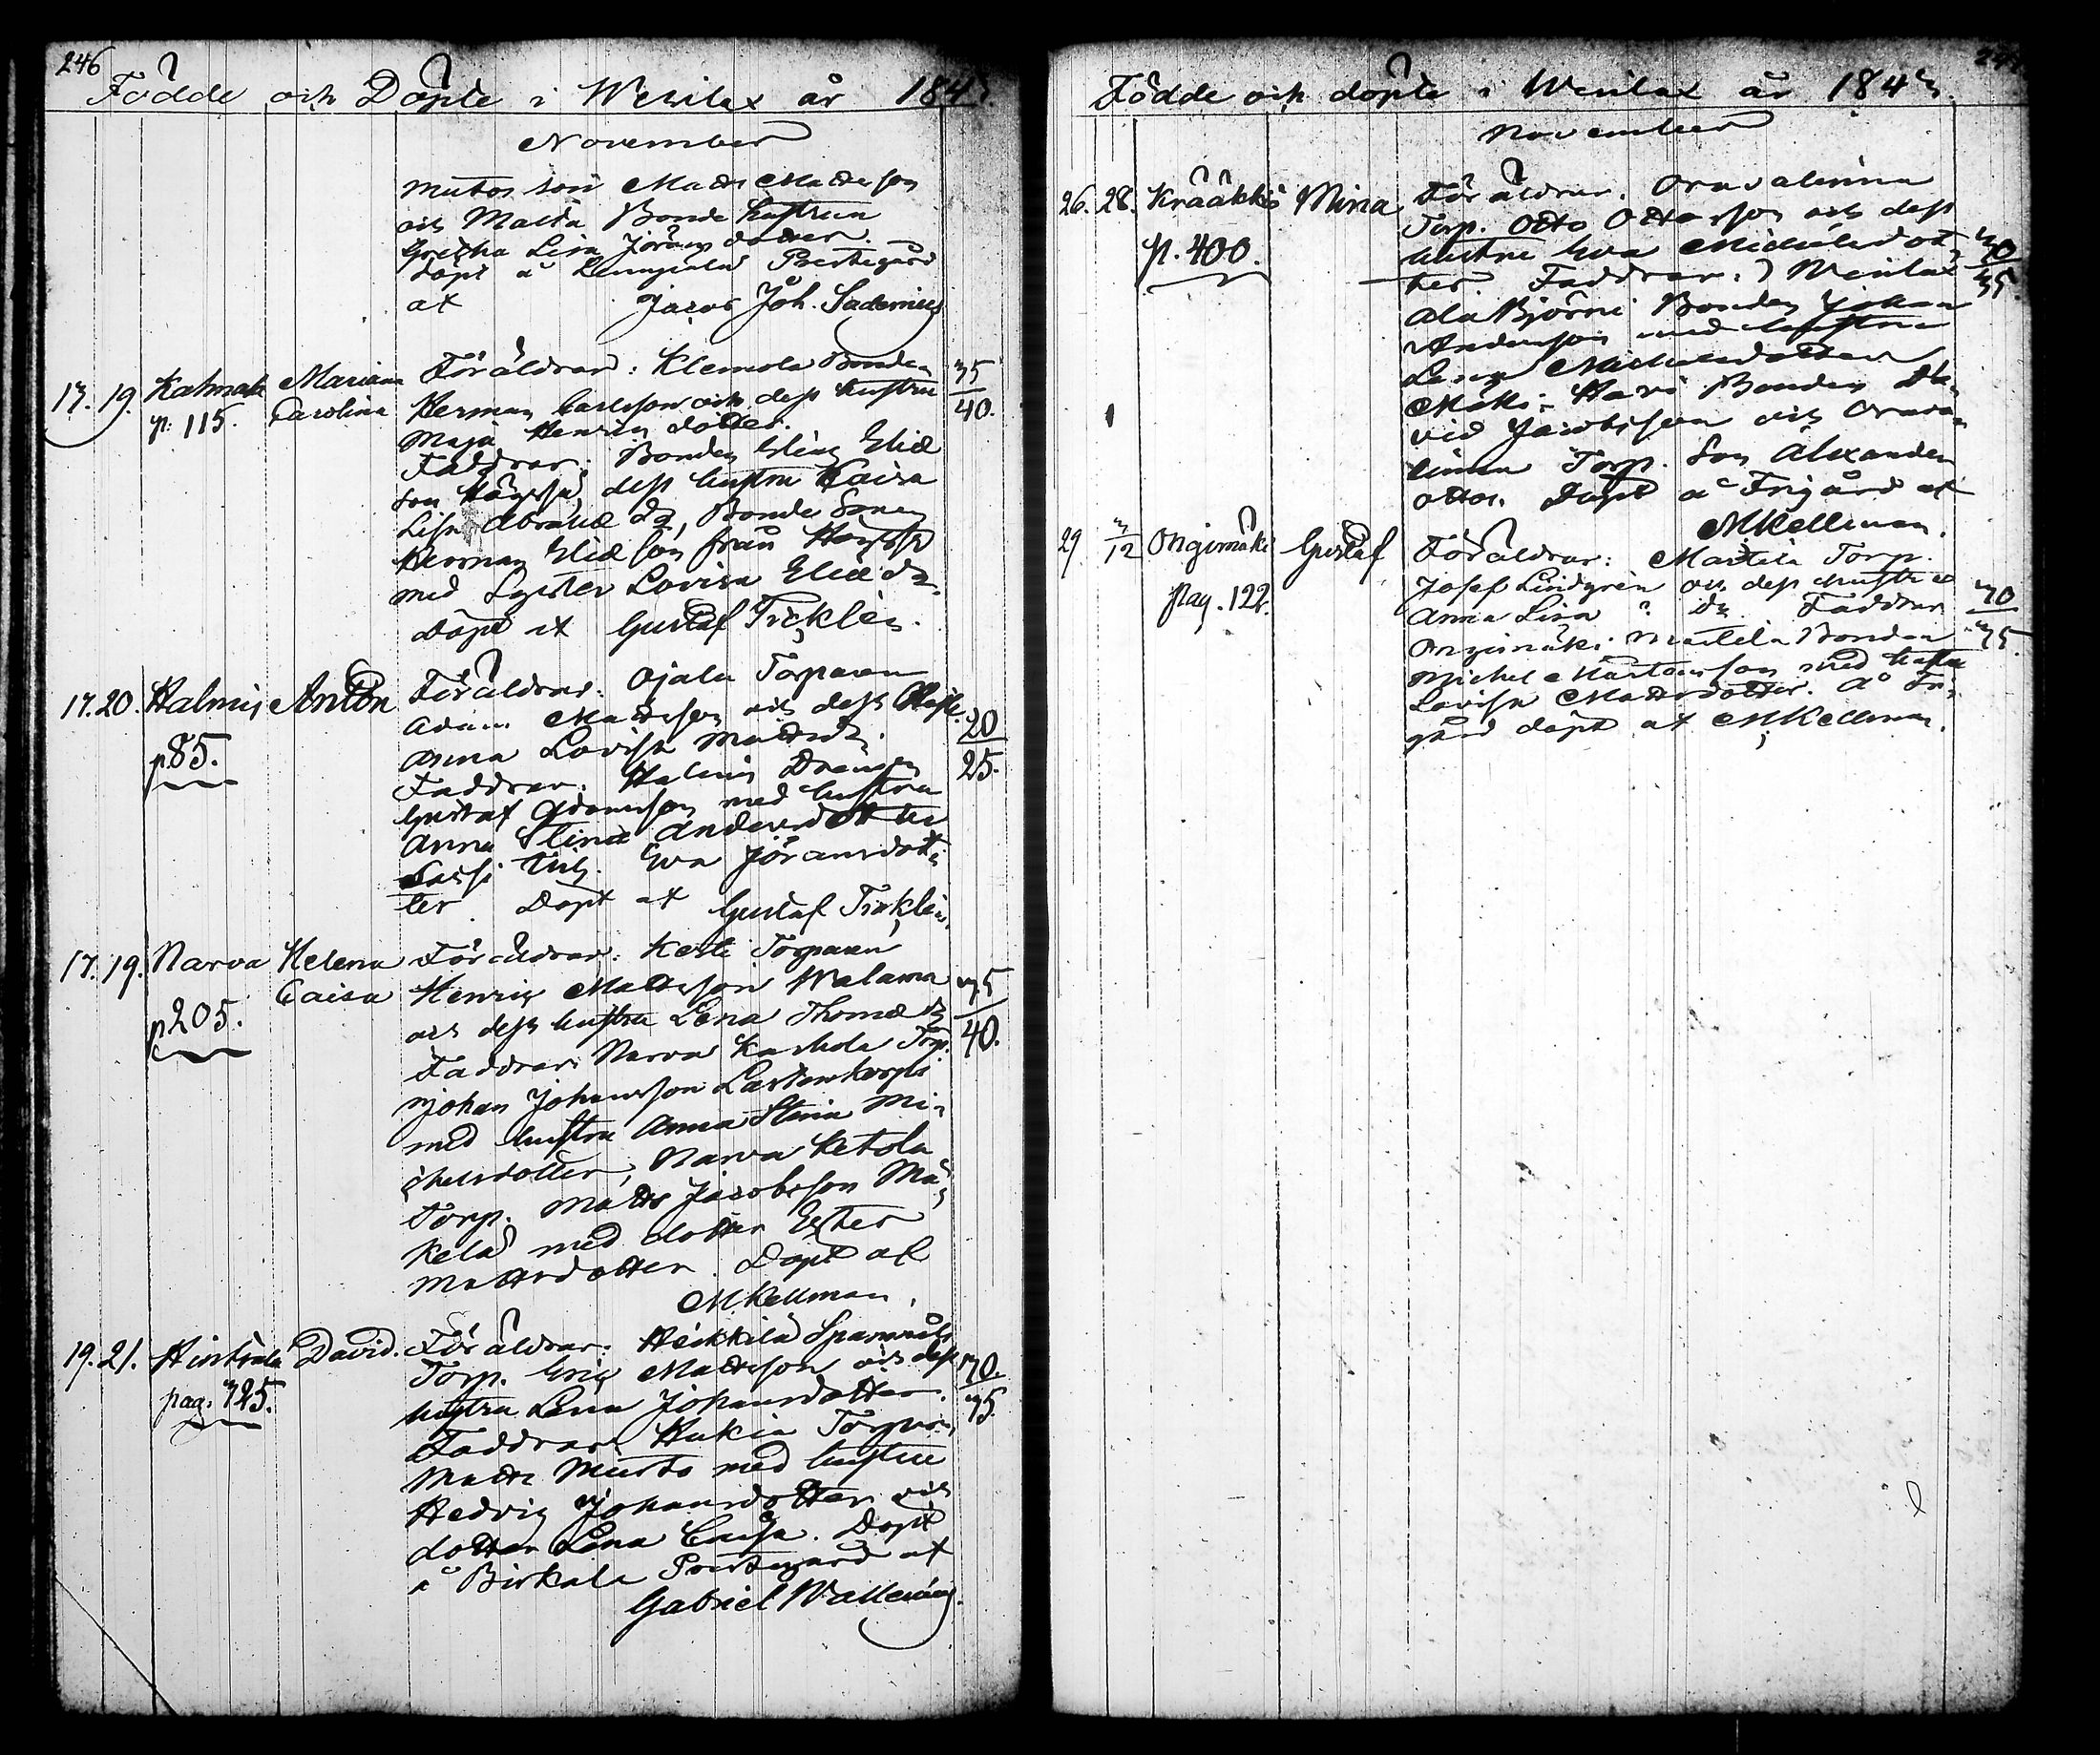 246
Födde och Döpte i Wesilax år 1843.
November
Mutos son Matts Mattsson
och Matta Bonde hustrun
Gretha Lisa Jöransdotter.
döpt å Lempiälä Prestegård
af Jacob Joh. Sadenius
13. 19. Kalmala Mariana Föräldrar: Klemola Bonden 35
p. 115. Carolina Herman Carlsson och dess hustru 40.
Maja Henrics dotter.
Faddrar: Bonden Elias Eliæ
son dess hustru Kaisa
Lisa Abrahā dr, Bonde Sonen
Herman Eliæ son från
med Syster Lovisa Eliæ dr.
Döpt af Gustaf Ticklén.
17. 20. Halmis Anton Föräldrar: Ojala Torparen
p 85. Adam Mattsson och dess Hust. 20
Anna Lovisa Mattsdr. 25.
Faddrar: Halmis Drengen
Gustaf Adamsson med hustru
Anna Stina Andersdotter
Lassi Enk. Eva Jöransdot-
ter. Döpt af Gustaf Ticklén.
17. 19. Narva Helena Föräldrar: Kesti Torparen
p 205. Caisa Henric Mattsson Walama 35
och dess hustru Lena Thomæ dr 40.
Faddrar: Narva Torp.
Johan Johansson Lastenkorpi
med hustru Anna Stina Mi-
chelsdotter, Narva Ketola
Torp. Matts Jacobsson Mä-
kelä med dotter Ester
Mattsdotter. Döpt af
M. Kellman.
19. 21. Hinsala David. Föräldrar: Heikkilä
pag. 325. Torp. Eric Mattsson och dess 30.
hustru Lena Johansdotter. 35.
Faddrar: Hukia Torpar.
Matts Musto med hustru
Hedvig Johansdotter och
dotter Lena Caisa. Döpt
å Birkala Prestegård af
Gabriel Wallenius.
Födde och döpte i Wesilax år 1843.
November
26. 28. Krääkkiö Mina Föräldrar: Oravalinna
p. 400. Torp. Otto Ottosson och dess
hustru Eva Michelsdot- 30
ter. Faddrar: Wesilax 35.
Ala Björni Bonden Johan
Andersson med hustru
Lena Michelsdotter
Mäki-Hari Bonden Da-
vid Jacobsson och Orava-
linna Torp. Son Alexander
Ottos. Döpt å Frigård af
M Kellman.
29. 3/12 Ongimäki Gustaf Föräldrar: Marttila Torp.
pag. 122. Josef Lindgrén och dess hustru
Anna Lisa ? dr. Faddrar 30
Ongimäki Marttila Bonden 35.
Michel Mårtensson med hustru
Lovisa Mattsdotter. Å Fri-
gård döpt af M Kellman.